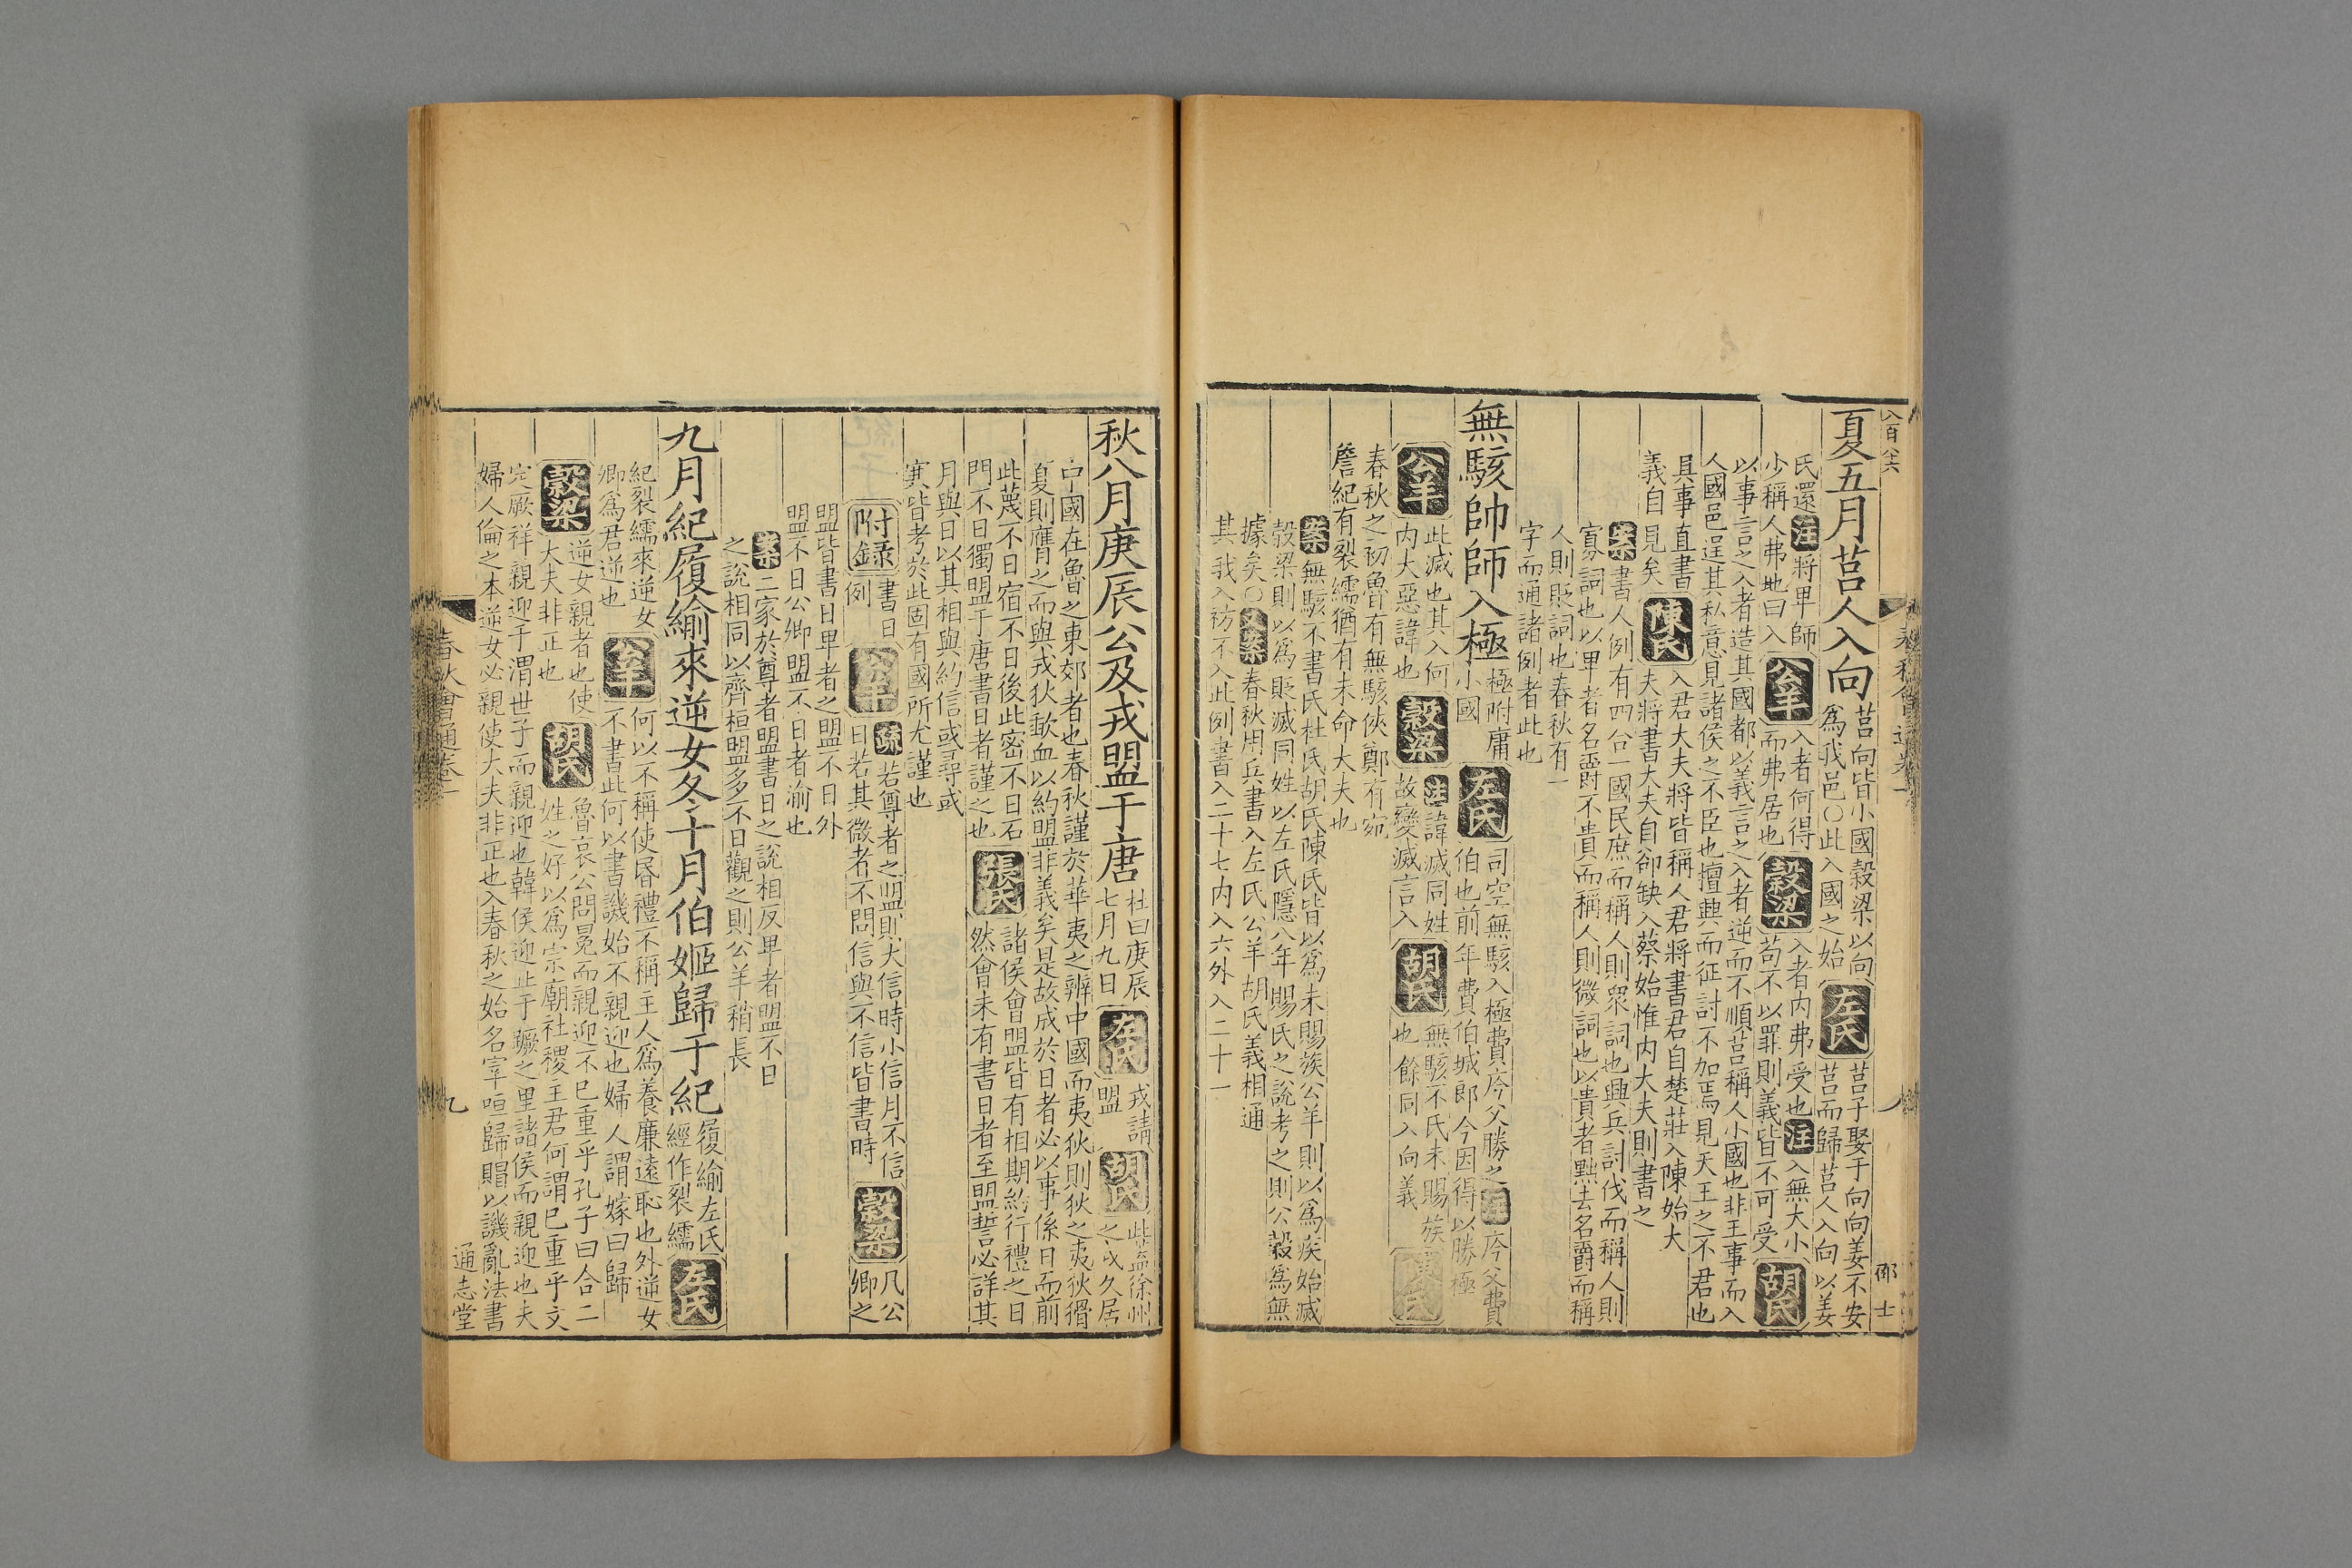 八百八六
邵士
夏五月莒人入向 莒向皆小國穀梁以向
為我邑○此入國之始 左氏 莒子娶于向向姜不安
莒而歸莒人入向以姜
氏還注將卑師
少稱人弗地曰入 公羊 入者何得
而弗居也 穀梁 入者內弗受也注入無大小
苟不以罪則義皆不可受 胡氏
以事言之入者造其國都以義言之入者逆而不順莒稱人小國也非王事而入
人國邑逞其私意見諸侯之不臣也擅興而征討不加焉見天王之不君也
具事直書
義自見矣 陳氏 入君大夫將皆稱人君將書君自楚莊入陳始大
夫將書大夫自郤缺入蔡始惟內大夫則書之
案書人例有四合一國民庶而稱人則衆詞也興兵討伐而稱人則
寡詞也以卑者名爵不貴而稱人則微詞也以貴者黜去名爵而稱
人則貶詞也春秋有一
字而通諸例者此也
無駭帥師入極 極附庸
小國 左氏 司空無駭入極費庈父勝之注庈父費
伯也前年費伯城郎今因得以勝極
公羊 此滅也其入何
內大惡諱也 穀梁 注諱滅同姓
故變滅言入 胡氏 無駭不氏未賜族
也餘同入向義 陳氏
春秋之初魯有無駭俠鄭有宛
詹紀有裂繻猶有未命大夫也
案無駭不書氏杜氏胡氏陳氏皆以為未賜族公羊則以為疾始滅
穀梁則以為貶滅同姓以左氏隱八年賜氏之說考之則公穀為無
據矣○又案春秋用兵書入左氏公羊胡氏義相通
其我入祊不入此例書入二十七內入六外入二十一
秋八月庚辰公及戎盟于唐 杜曰庚辰
七月九日 左氏 戎請
盟 胡氏 此蓋徐州
之戎久居
中國在魯之東郊者也春秋謹於華夷之辨中國而夷狄則狄之夷狄猾
夏則膺之而與戎狄歃血以約盟非義矣是故成於日者必以事係日而前
此蔑不日宿不日後此密不日石
門不日獨盟于唐書日者謹之也 張氏 諸侯會盟皆有相期約行禮之日
然會未有書日者至盟誓必詳其
月與日以其相與約信或尋或
寒皆考於此固有國所尤謹也
附錄 書日
例 公羊 疏若尊者之盟則大信時小信月不信
日若其微者不問信與不信皆書時 穀梁 凡公
卿之
盟皆書日卑者之盟不日外
盟不日公卿盟不日者渝也
案二家於尊者盟書日之說相反卑者盟不日
之說相同以齊桓盟多不日觀之則公羊稍長
九月紀履緰來逆女冬十月伯姬歸于紀 履緰左氏
經作裂繻 左氏
紀裂繻來逆女
卿為君逆也 公羊 何以不稱使昏禮不稱主人為養廉遠恥也外逆女
不書此何以書譏始不親迎也婦人謂嫁曰歸
穀梁 逆女親者也使
大夫非正也 胡氏 魯哀公問冕而親迎不已重乎孔子曰合二
姓之好以為宗廟社稷主君何謂已重乎文
定厥祥親迎于渭世子而親迎也韓侯迎止于蹶之里諸侯而親迎也夫
婦人倫之本逆女必親使大夫非正也入春秋之始名宰咺歸賵以譏亂法書
春秋會通卷一
九
通志堂